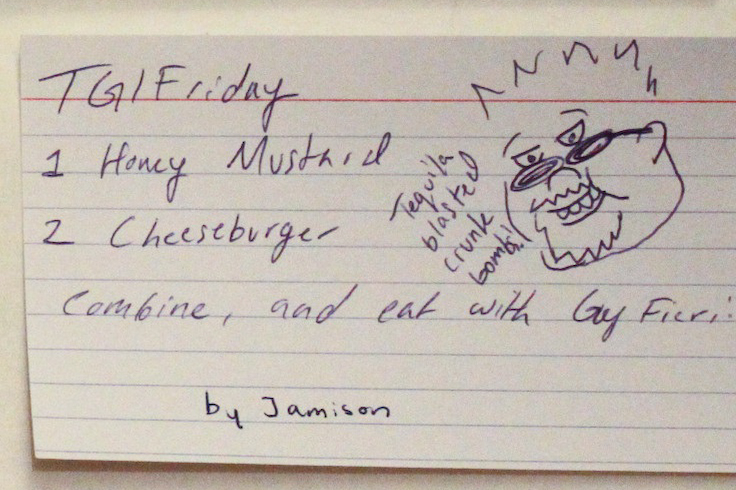 TGIFriday
1 Honey Mustard
2 Cheeseburger
Tequila
blasted
crunk
bomb!
Combine, and eat with Guy Fieri!
by Jamison